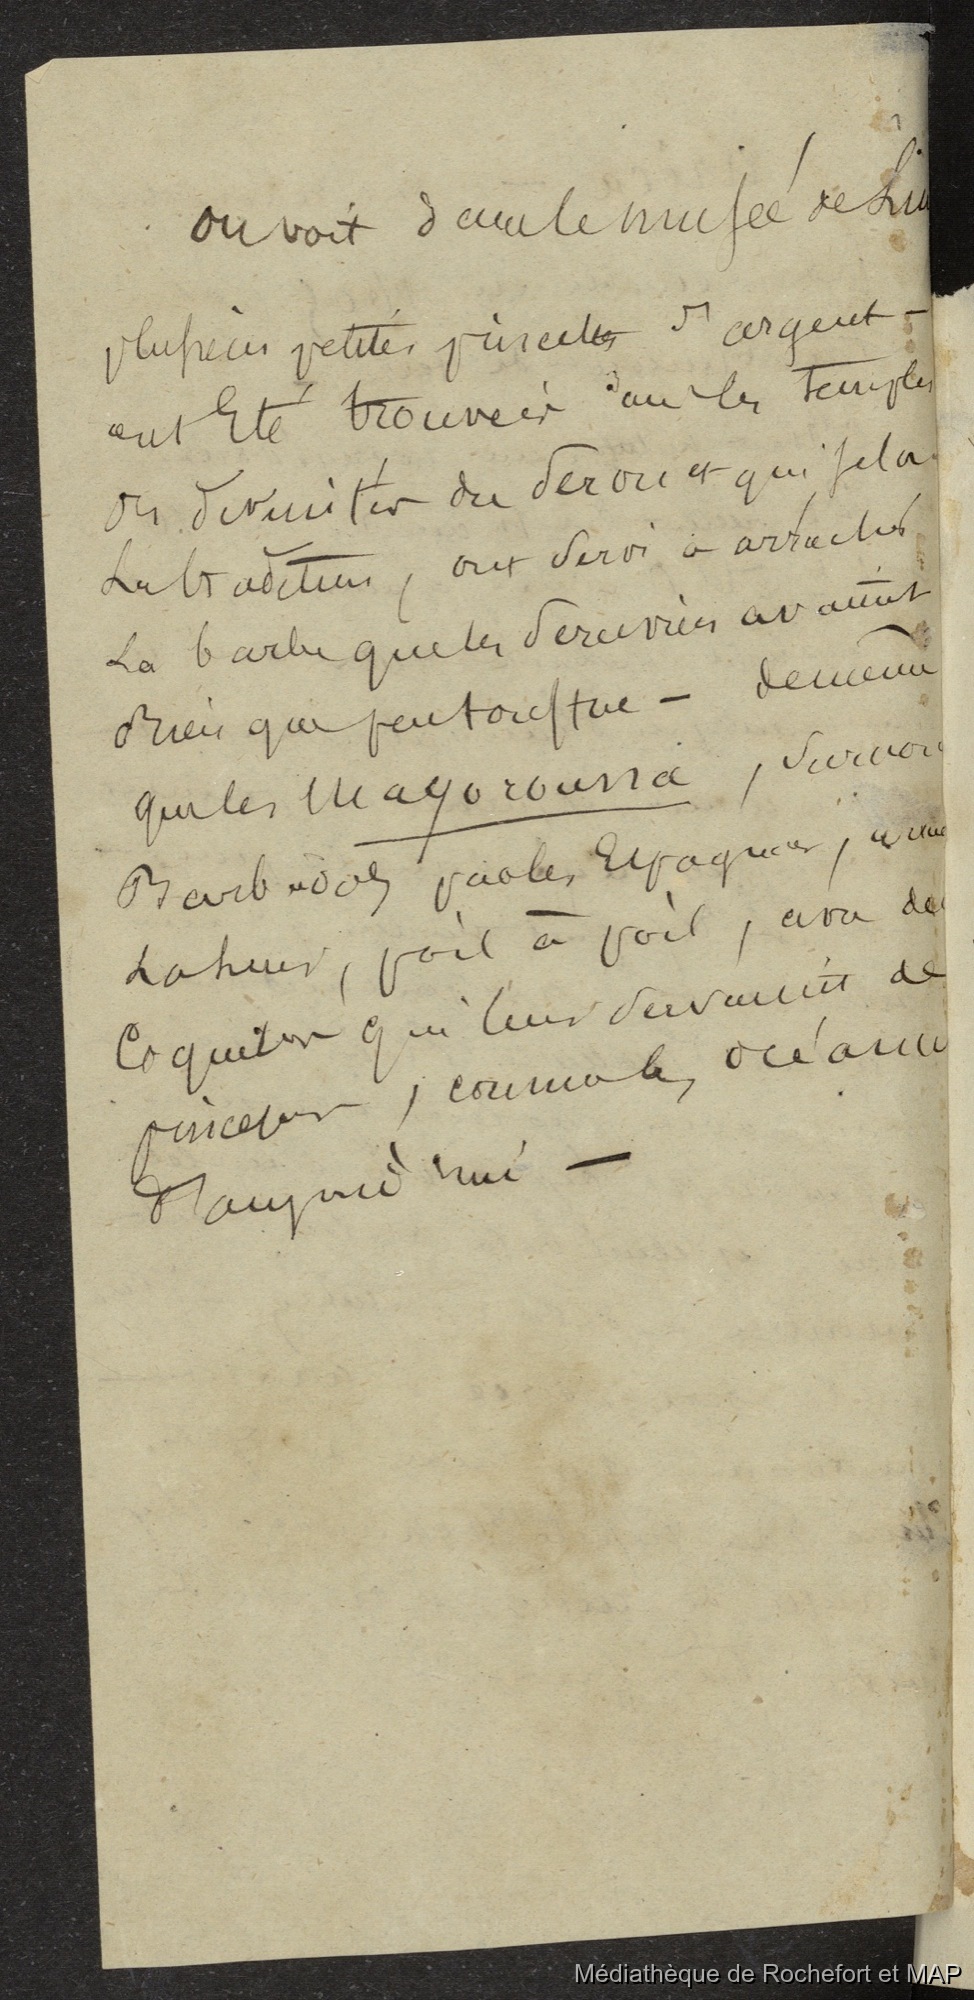 on voit dans le musée de Lim
plusieurs petites pinces d'argent –
ont Eté trouvées dans les temples
des divinités du Pérou et qui selon
La tradition, ont servi à arracher
La barbe que les Péruviens avaient
Bien que peu touffue – de même
que les Mayorouna, surnom
Barbudos par les Espagnols,
poil à poil, avec de
Coquilles qui leur servaient de
pinces, comme les océani
D'aujourd'hui –
Médiathèque de Rochefort et MAP